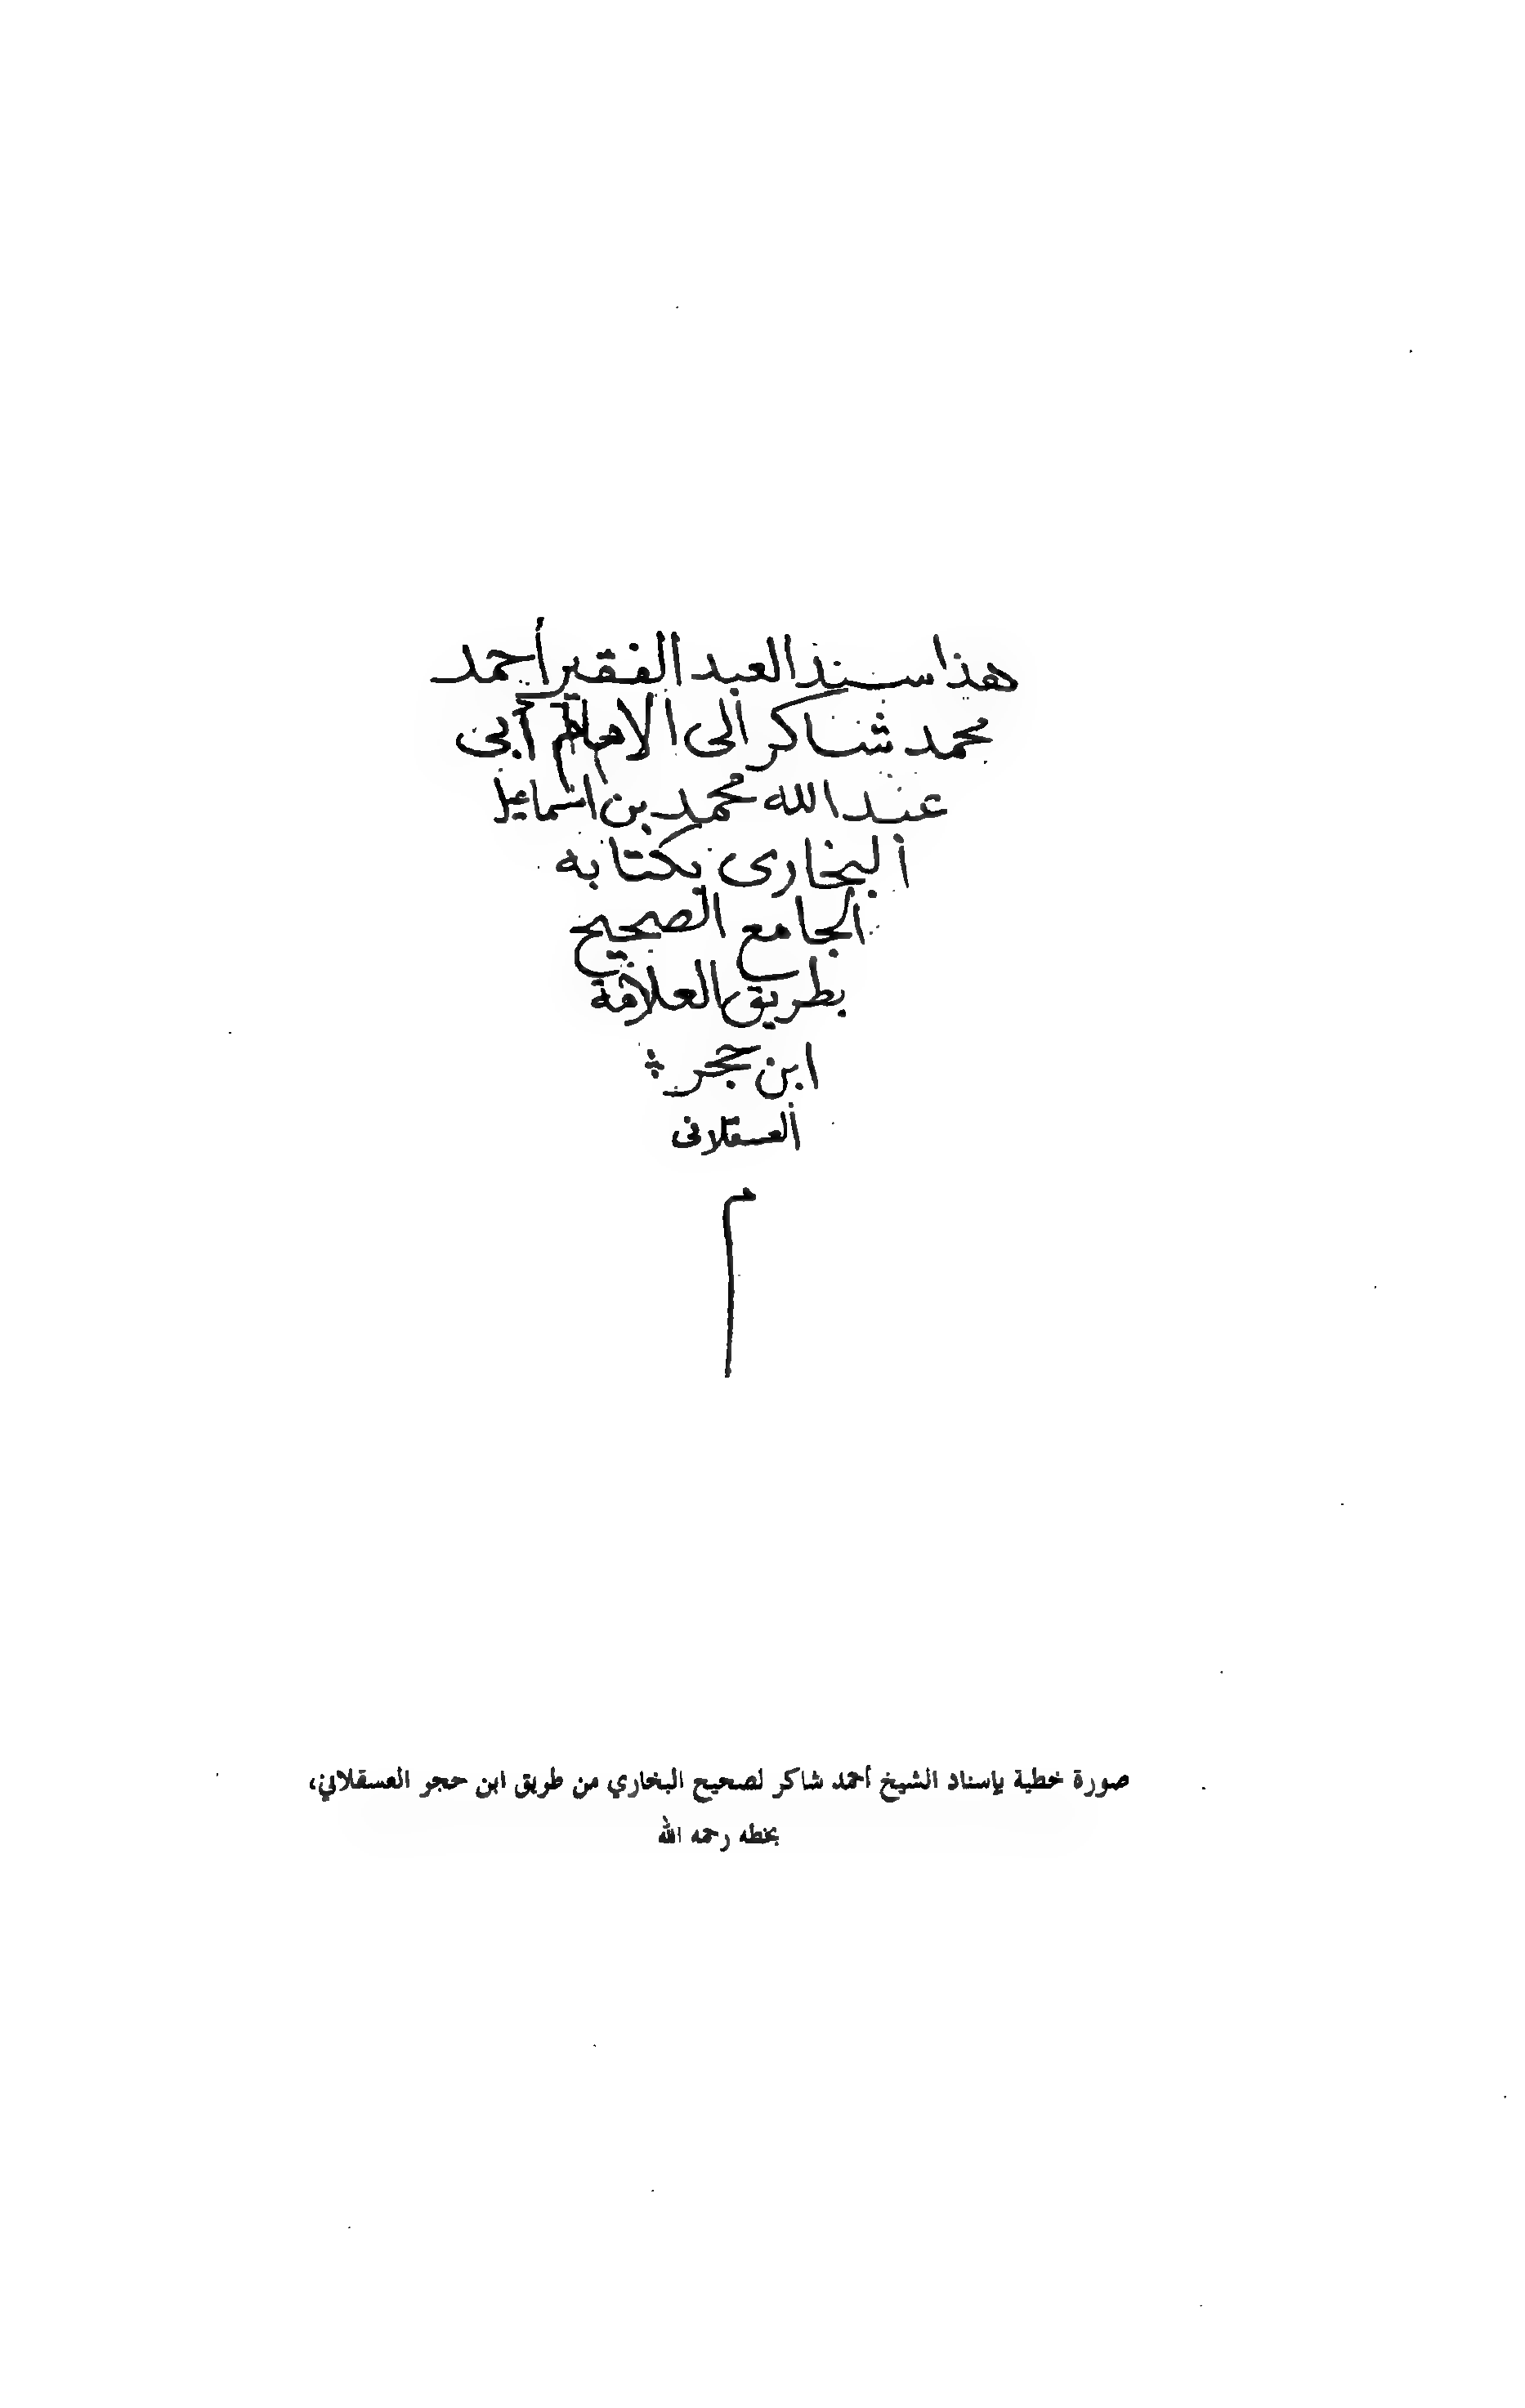 هذا سند العبد الفقير أحمد
محمد شاكر الى الامام أبى
عبد الله محمد بن اسماعيل
البخارى بكتابه
الجامع الصحيح
بطريق العلامة
ابن حجر
العسقلانى
م
صورة خطية بإسناد الشيخ أحمد شاكر لصحيح البخاري من طريق ابن حجر العسقلاني،
بخطه رحمه الله